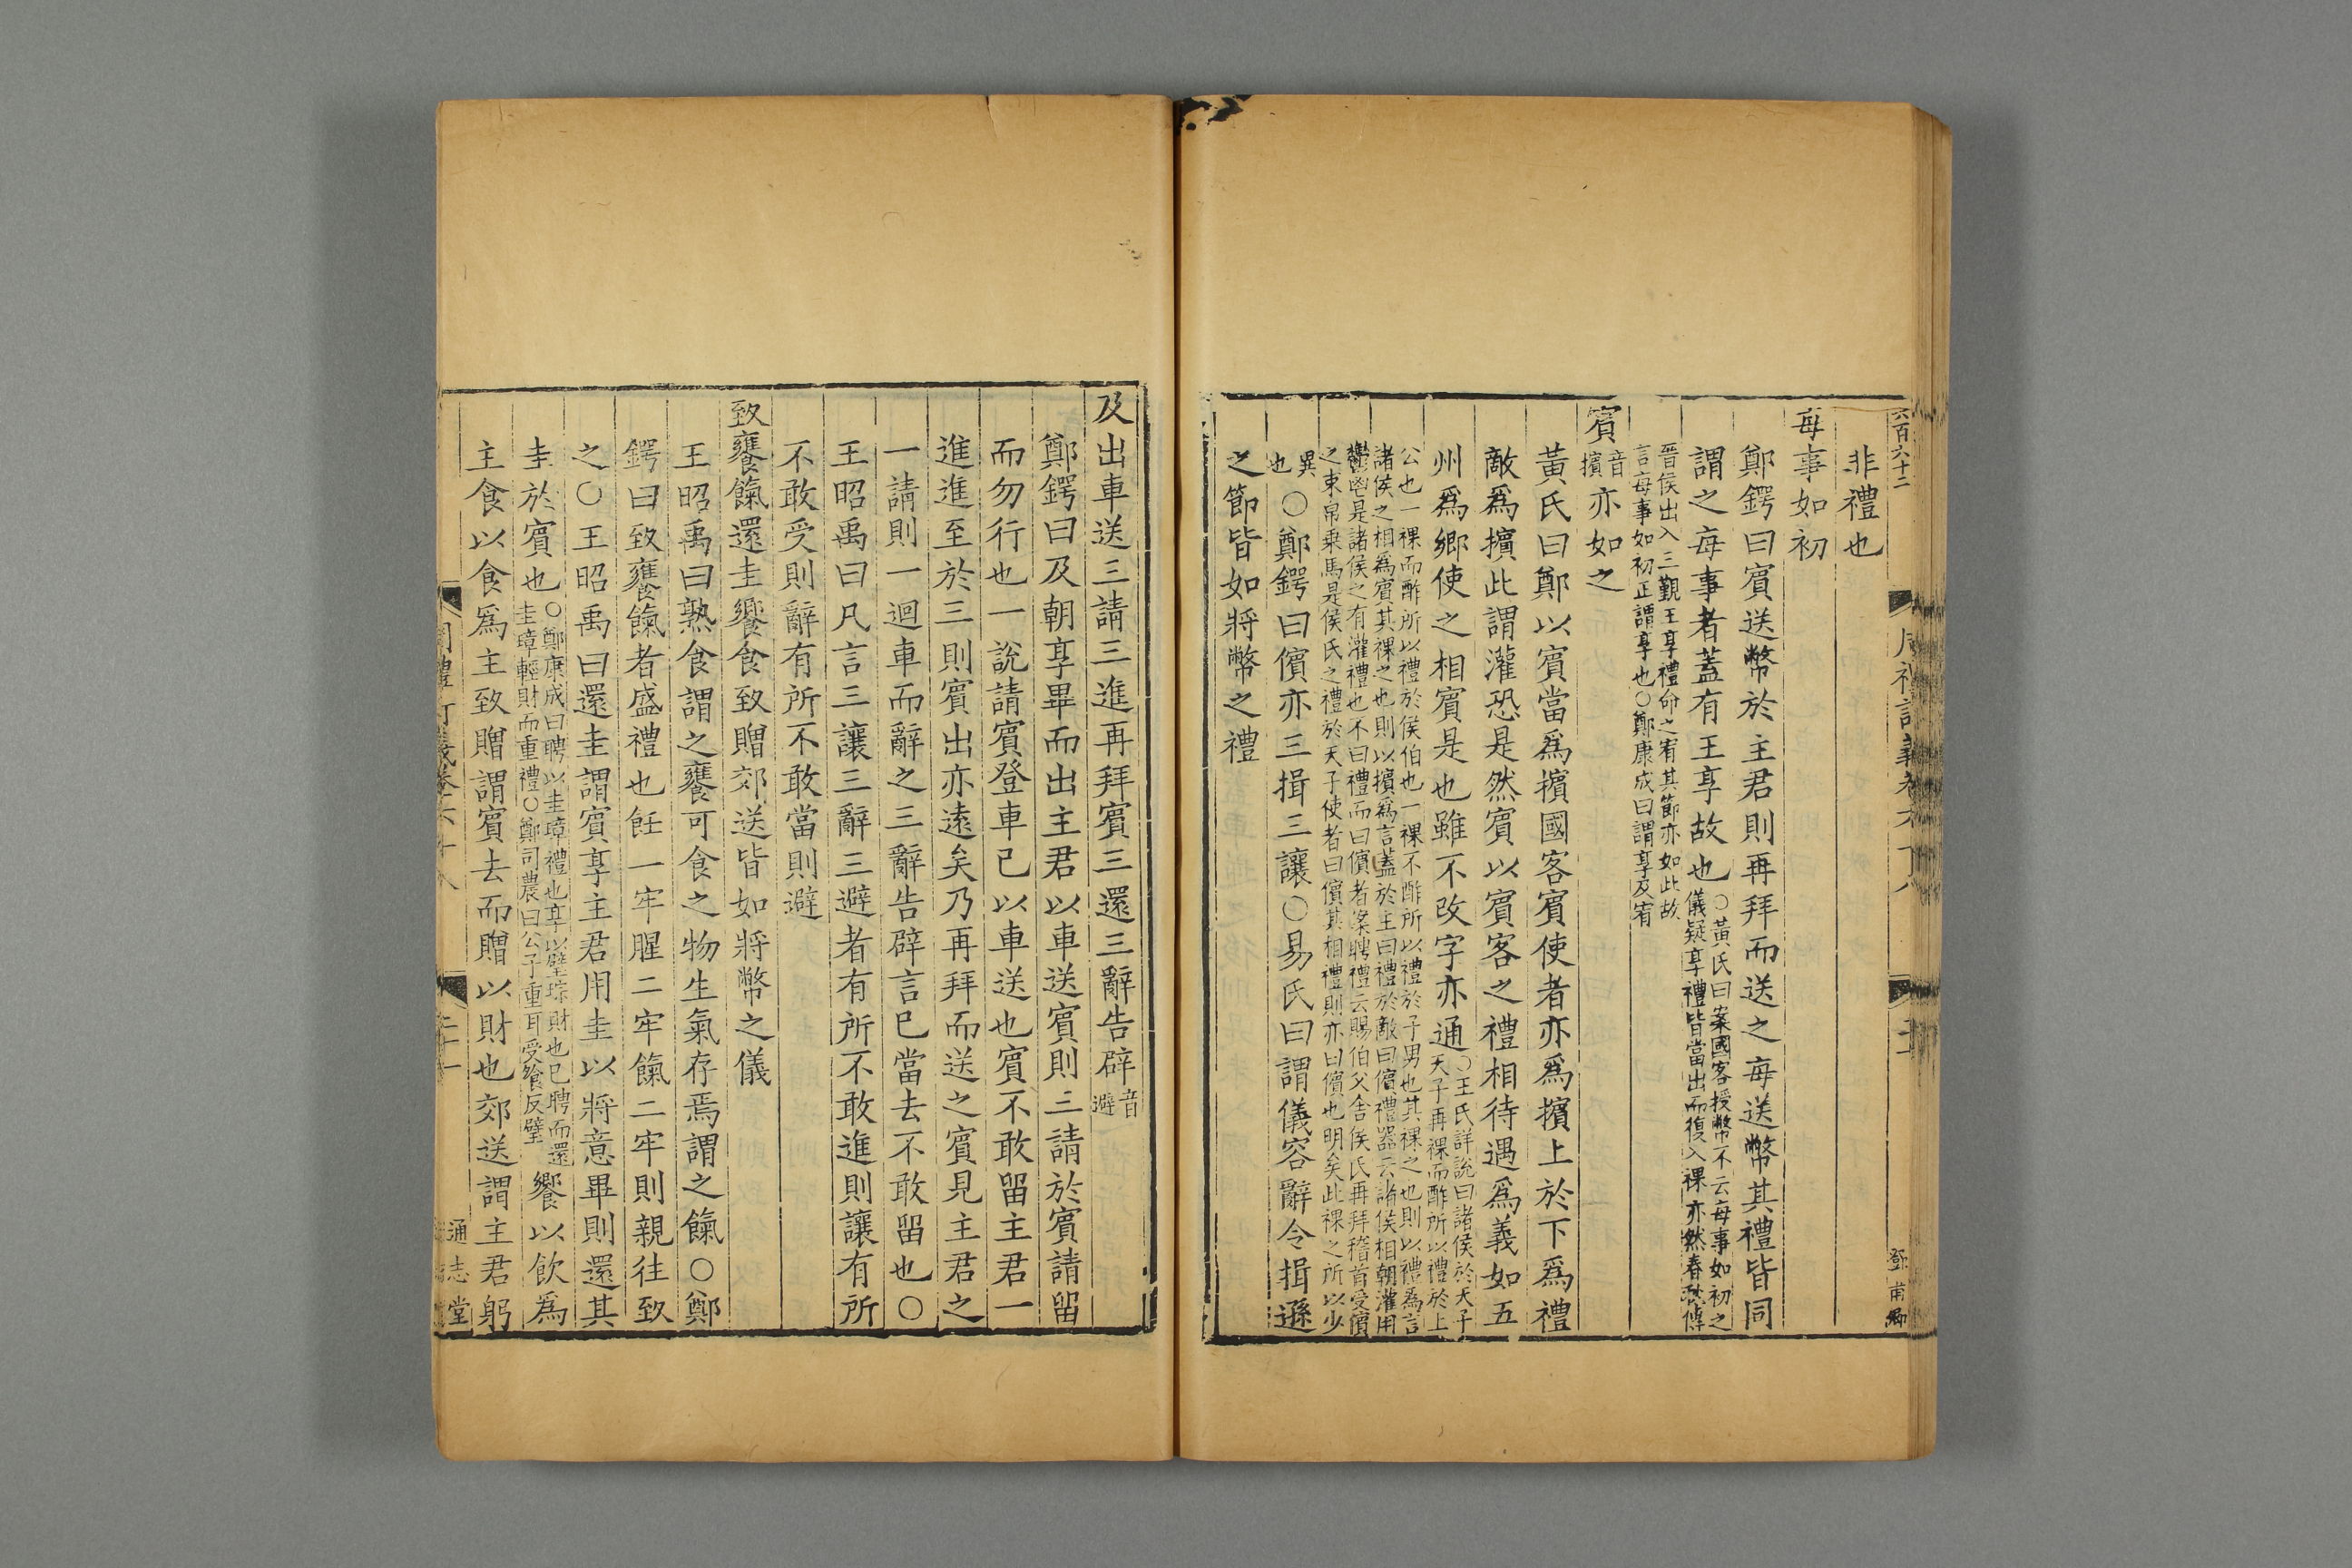 六百六十二
非禮也
每事如初
鄭鍔曰賓送幣於主君則再拜而送之每送幣其禮皆同
謂之每事者蓋有王享故也○黃氏曰案國客授幣不云每事如初之儀疑享禮皆當出而復入祼亦然春秋傳
晉侯出入三覲王享禮命之宥其節亦如此故言每事如初正謂享也○鄭康成曰謂享及宥
賓音擯亦如之
黃氏曰鄭以賓當為擯國客賓使者亦為擯上於下為禮
敵為擯此謂灌恐是然賓以賓客之禮相待遇為義如五
州為鄉使之相賓是也雖不改字亦通○王氏詳說曰諸侯於天子天子再祼而酢所以禮於上
公也一祼而酢所以禮於侯伯也一祼不酢所以禮於子男也其祼之也則以禮為言諸侯之相為賓其祼之也則以擯為言蓋於主曰禮於敵曰儐禮器云諸侯相朝灌用
鬱鬯是諸侯之有灌禮也不曰禮而曰儐者案聘禮云賜伯父舍侯氏再拜稽首受儐之束帛乘馬是侯氏之禮於天子使者曰儐其相禮則亦曰儐也明矣此祼之所以少
異也○鄭鍔曰儐亦三揖三讓○易氏曰謂儀容辭令揖遜
之節皆如將幣之禮
及出車送三請三進再拜賓三還三辭告辟音避
鄭鍔曰及朝享畢而出主君以車送賓則三請於賓請留
而勿行也一說請賓登車已以車送也賓不敢留主君一
進進至於三則賓出亦遠矣乃再拜而送之賓見主君之
一請則一迴車而辭之三辭告辟言已當去不敢留也○
王昭禹曰凡言三讓三辭三避者有所不敢進則讓有所
不敢受則辭有所不敢當則避
致饔餼還圭饗食致贈郊送皆如將幣之儀
王昭禹曰熟食謂之饔可食之物生氣存焉謂之餼○鄭
鍔曰致饔餼者盛禮也飪一牢腥二牢餼二牢則親往致
之○王昭禹曰還圭謂賓享主君用圭以將意畢則還其
圭於賓也○鄭康成曰聘以圭璋禮也享以璧琮財也已聘而還圭璋輕財而重禮○鄭司農曰公子重耳受飧反璧饗以飲為
主食以食為主致贈謂賓去而贈以財也郊送謂主君躬
通志堂